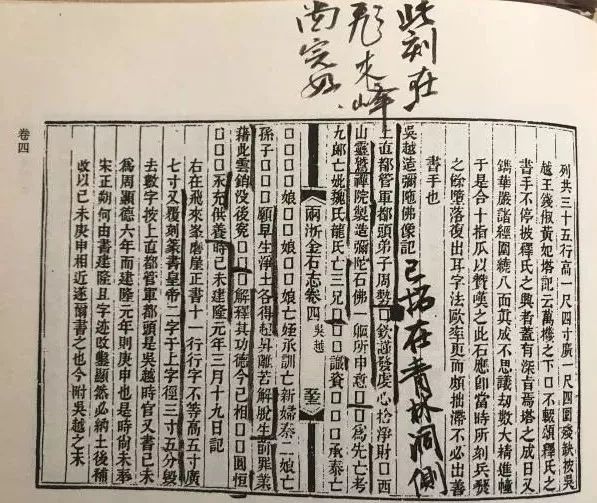 此刻在
飛來峰
尚完好、
列共三十五行高一尺四寸廣一尺四圍殘缺按吳
越王錢俶黃妃塔記云萬樓之下口不輟頌釋氏之
書手不停披釋氏之典者蓋有深旨焉塔之成日又
鐫華嚴諸經圍繞八面真成不思議劫數大精進幢
于是合十指爪以贊嘆之此石應卽當時所刻兵發
之餘墮落復出耳字法歐率更而頗拙滯不必出善
書手也
吳越造彌陁佛像記
已拓在青林洞側
上直都管軍都頭弟子周勢□□欽謹發虔心捨淨財□西
山靈鷲禪院製造彌陁石佛一軀所申意□□為先亡考
九郎亡妣魏氏龍氏亡三兄□□□謐資□□□□承泰亡
兩浙金石志卷四 吳越
□□□□娘□□娘□□娘亡姪承訓亡新婦秦二娘亡
孫子□□□□願早生淨土各得超昇離苦解脫生前罪業
藉此雲銷沒後寃□□□□解釋其功德今已相□□圓恒
□□□永充供養時己未建隆元年三月十九日記
右在飛來峯磨崖正書十一行行字不等高五寸廣
七寸又覆刻篆書皇帝二字于上字徑三寸五分毀
去數字按上直都管軍都頭是吳越時官又書己未
爲周顯德六年而建隆元年則庚申也是時尚未奉
宋正朔何由書建隆且字迹收鑿顯然必納土後補
改以己未庚申相近遂爾書之也今附吳越之末
卷四